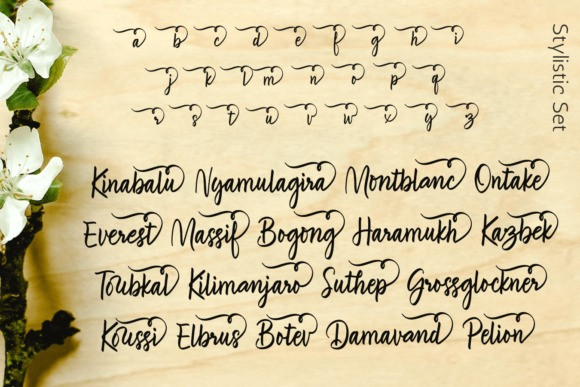 a b c d e f g h i
j k l m n o p q
r s t u v w x y z
Stylistic Set
Kinabalu Nyamulagira Montblanc Ontake
Everest Massif Bogong Haramukh Kazbek
Toubkal Kilimanjaro Suthep Grossglockner
Koussi Elbrus Botev Damavand Pelion